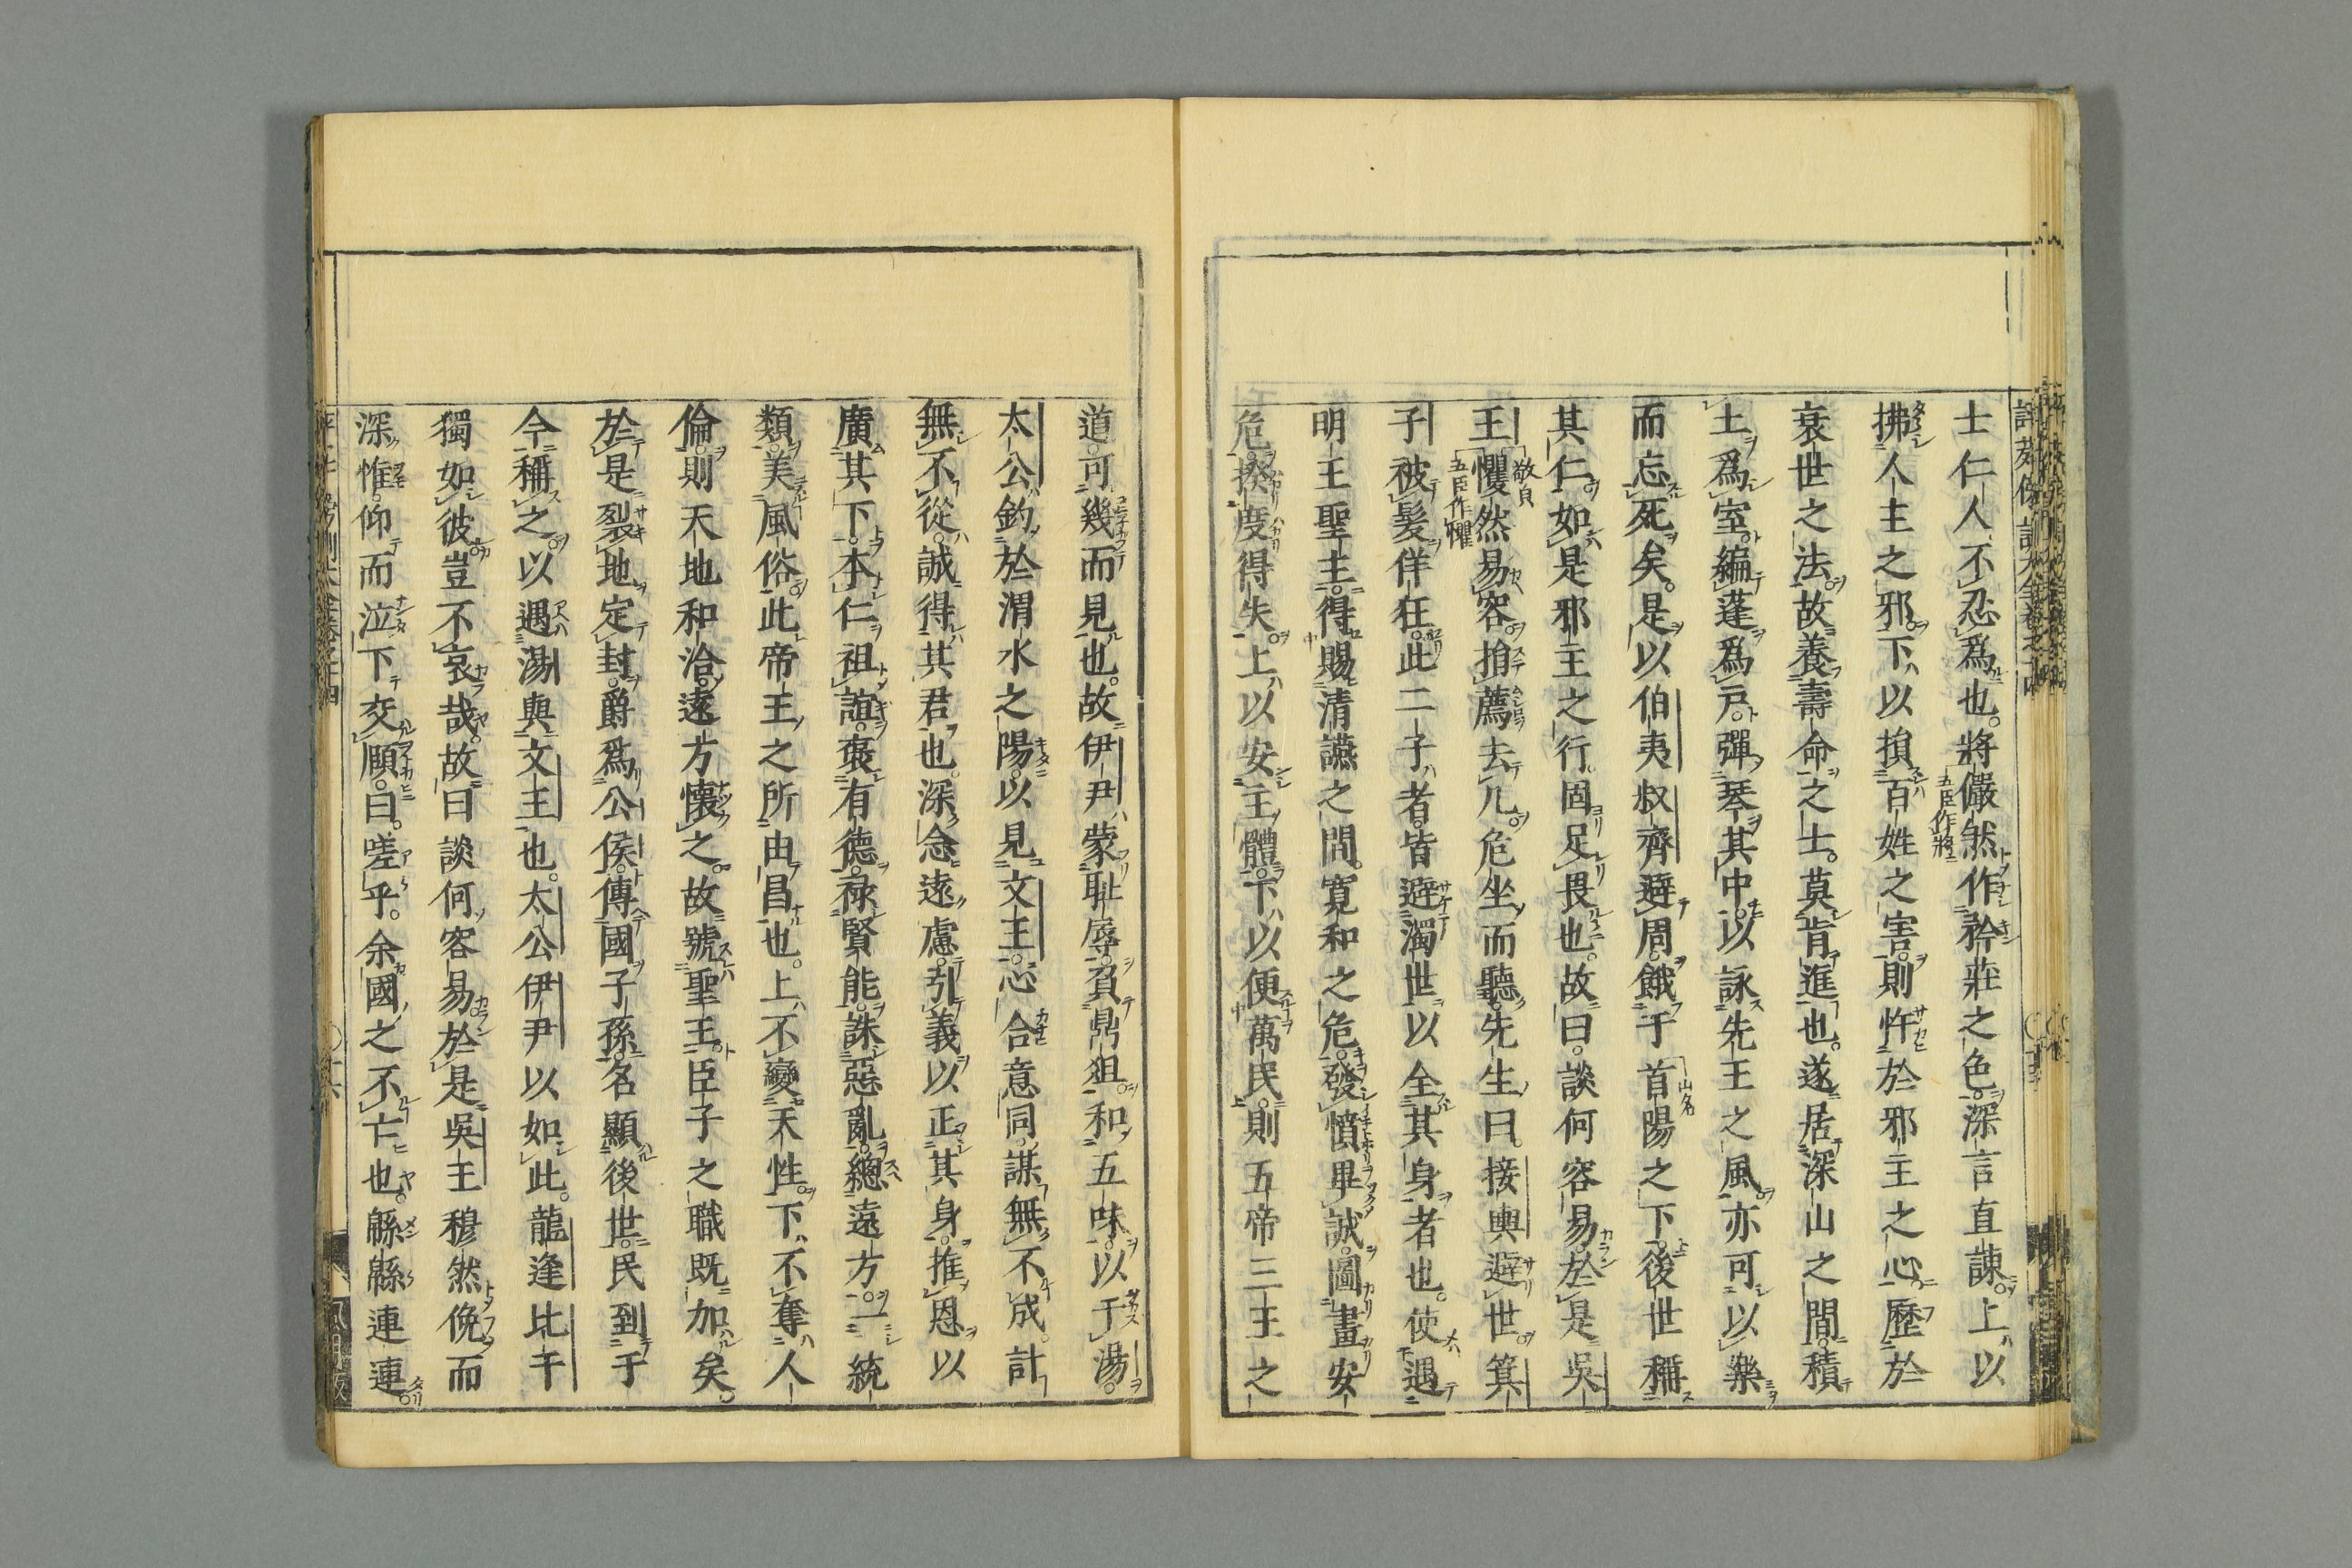 士仁人不忍爲也。將儼然作矜莊之色。深言直諫。上以
五臣作將
拂人主之邪。下以損百姓之害。則忤於邪主之心。歷於
衰世之法。故養壽命之士。莫肯進也。遂居深山之間。積
土爲室。編蓬爲戶。彈琴其中。以詠先王之風。亦可以樂
而忘死矣。是以伯夷叔齊避周。餓于首陽之下。後世稱
山名
其仁。如是邪主之行。固足畏也。故曰。談何容易。於是吳
王懼然易容。捐薦去几。危坐而聽。先生曰。接輿避世。箕
敬貞
五臣作懼
子被髮佯狂。此二子者。皆避濁世以全其身者也。使遇
明王聖主。得賜清讌之間。寬和之危。發憤畢誠。圖畫安
危。揆度得失。上以安主體。下以便萬民。則五帝三王之
道。可幾而見也。故伊尹蒙耻辱。負鼎俎。和五味。以于湯。
太公釣於渭水之陽。以見文王。心合意同。謀無不成。計
無不從。誠得其君也。深念遠慮。引義以正其身。推恩以
廣其下。本仁祖誼。褒有德。祿賢能。誅惡亂。總遠方。一統
類。美風俗。此帝王之所由昌也。上不變天性。下不奪人
倫。則天地和洽。遠方懷之。故號聖王。臣子之職既加矣。
於是裂地定封。爵爲公侯。傳國子孫。名顯後世。民到于
今稱之。以遇湯與文王也。太公伊尹以如此。龍逢比干
獨如彼。豈不哀哉。故曰談何容易。於是吳王穆然俛而
深惟。仰而泣下交頤。曰。嗟乎。余國之不亡也。緜緜連連。